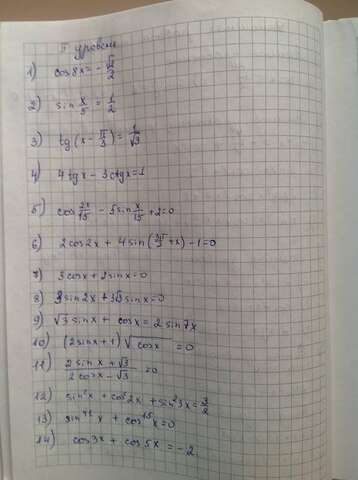 II уровень
1) cos8x = -√2/2
2) sin x/5 = 1/2
3) tg(x - π/3) = 1/√3
4) 4tgx - 3ctgx = 1
5) cos 2x/15 - 5sin x/15 + 2 = 0
6) 2cos2x + 4sin(3π/2 + x) - 1 = 0
7) 3cosx + 2sinx = 0
8) 3sin2x + 3√3 sinx = 0
9) √3 sinx + cosx = 2sin7x
10) (2sinx + 1)√cosx = 0
11) (2sinx + √3)/(2cosx - √3) = 0
12) sin²x + cos²2x + sin²3x = 3/2
13) x + cos¹⁵x = 0
14) cos3x + cos5x = -2